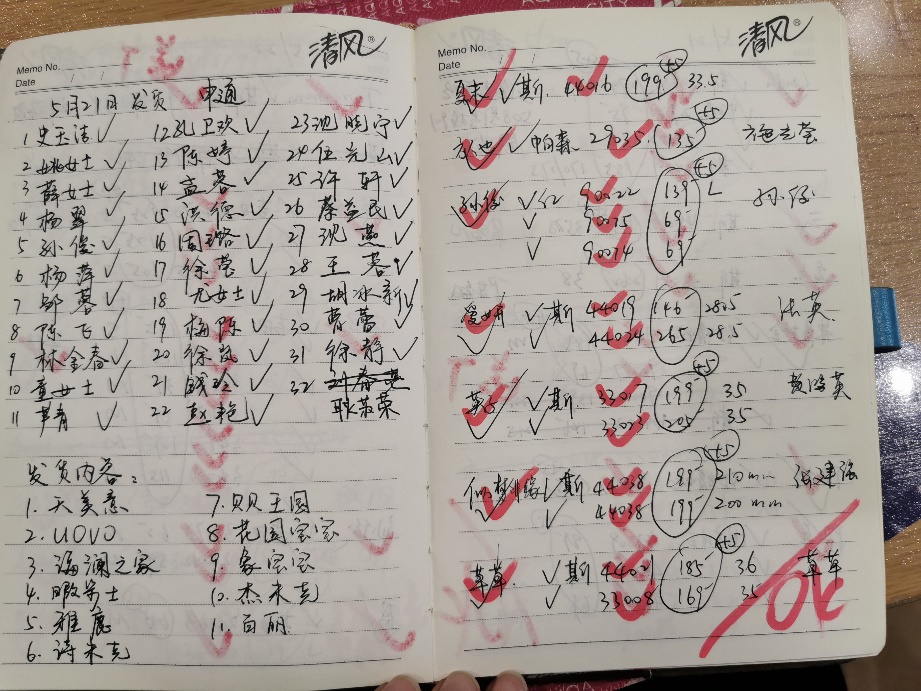 清风®
Memo No.
Date / /
5月21日 发货 申通
1 史玉洁 ✓ 12 孔卫玖 ✓ 23 沈晓宁 ✓
2 姚女士 ✓ 13 陈婷 ✓ 24 伍光山 ✓
3 薛女士 ✓ 14 孟蓉 ✓ 25 许轩 ✓
4 杨翠 ✓ 15 洪德 ✓ 26 蔡益民 ✓
5 孙俊 ✓ 16 周璐 ✓ 27 沈燕 ✓
6 杨萍 ✓ 17 徐莹 ✓ 28 王蓉 ✓
7 邹蓉 ✓ 18 尤女士 ✓ 29 胡冰新 ✓
8 陈飞 ✓ 19 梅陈 ✓ 30 曹蕾 ✓
9 林金春 ✓ 20 徐岚 ✓ 31 徐静 ✓
10 童女士 ✓ 21 ✓ 32
11 青 ✓ 22 赵艳 ✓ 耿苏荣
发货内容：
1. 天美意 7. 贝贝王国
2. UOVO 8. 花园宝宝
3. 海澜之家 9. 象宝宝
4. 暇步士 10. 杰米克
5. 雅鹿 11. 百丽
6. 诗米克
清风®
Memo No.
Date / /
夏末 ✓ 斯 44016 199 +5 33.5
✓ 帕森 29035 135 +5 施志荟
孙俊 ✓ 仁 90022 139 +5 L 孙俊
✓ 90015 69
✓ 90014 69
爱世开 ✓ 斯 44019 146 28.5 法英
44024 265 28.5
✓ 斯 33017 199 +5 35 黄海英
33023 205 35
✓ 斯 44038 199 +5 210mm 张建强
✓ 44038 199 200mm
草草 ✓ 斯 44021 185 +5 36 草草
✓ 33008 169 35
OK